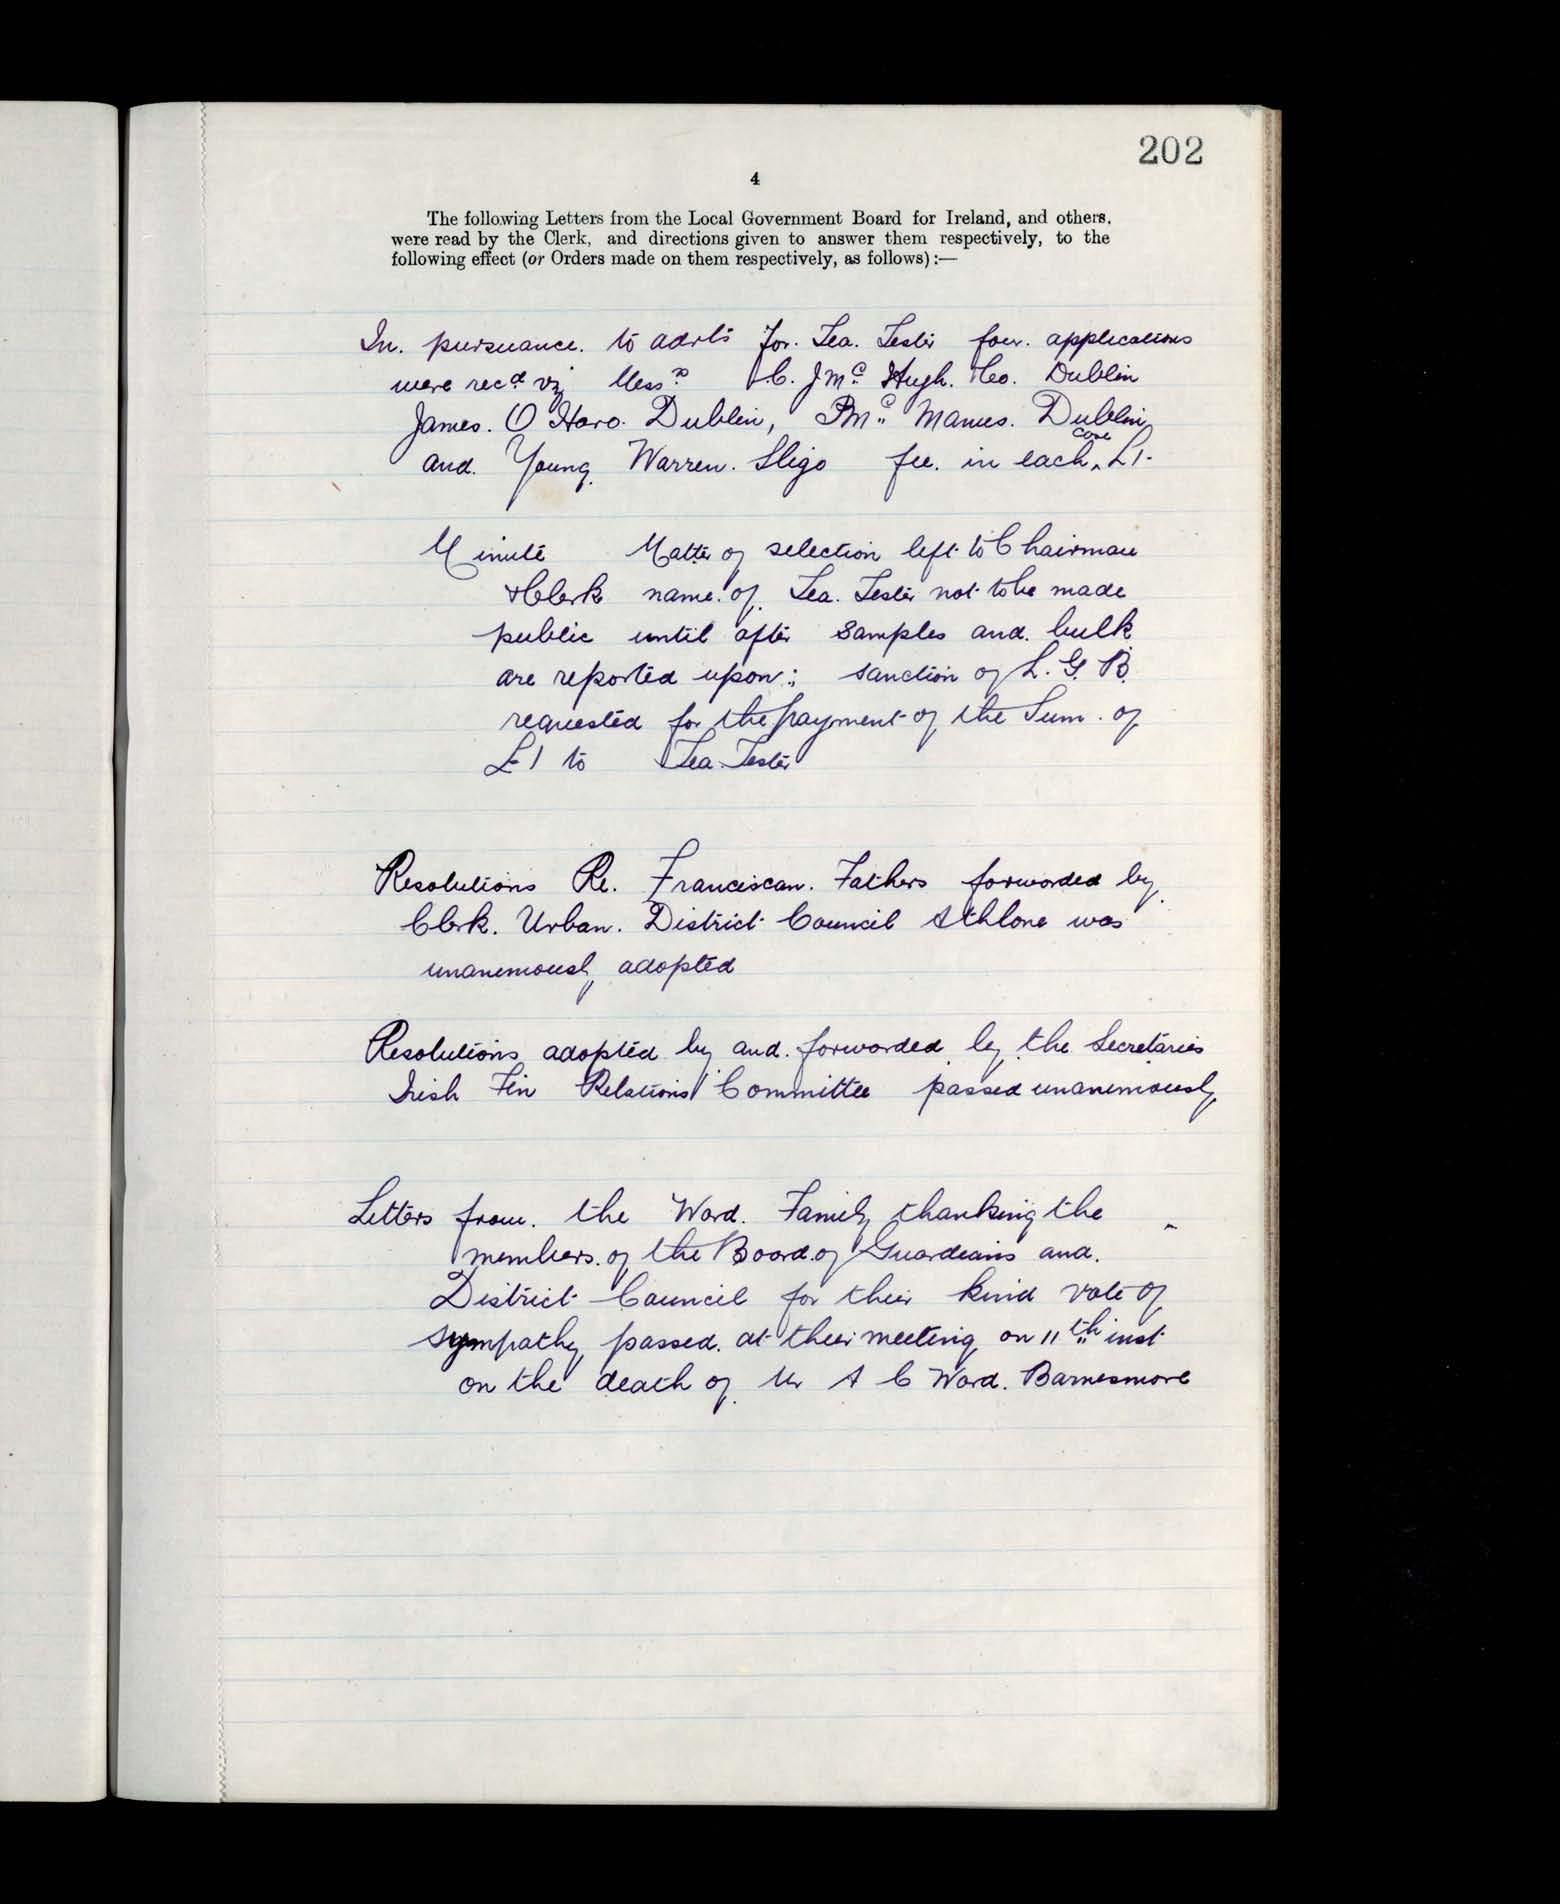 202
4
The following Letters from the Local Government Board for Ireland, and others,
were read by the Clerk, and directions given to answer them respectively, to the
following effect (or Orders made on them respectively, as follows):—
In pursuance to advts for Tea Tester four applications
were recd viz Messrs C. J McHugh & Co. Dublin
James O Hara Dublin, P McManus Dublin
and Young Warren Sligo fee in each case £1
Minute Matter of selection left to Chairman
& Clerk name of Tea Tester not to be made
public until after samples and bulk
are reported upon: sanction of L. G. B
requested for the payment of the Sum of
£1 to Tea Tester
Resolutions Re Franciscan Fathers forwarded by
Clerk Urban District Council Athlone was
unanimously adopted
Resolutions adopted by and forwarded by the Secretaries
Irish Fin Relations Committee passed unanimously
Letters from the Ward Family thanking the
members of the Board of Guardians and
District Council for their kind vote of
sympathy passed at their meeting on 11th inst
on the death of Mr A C Ward Barnesmore